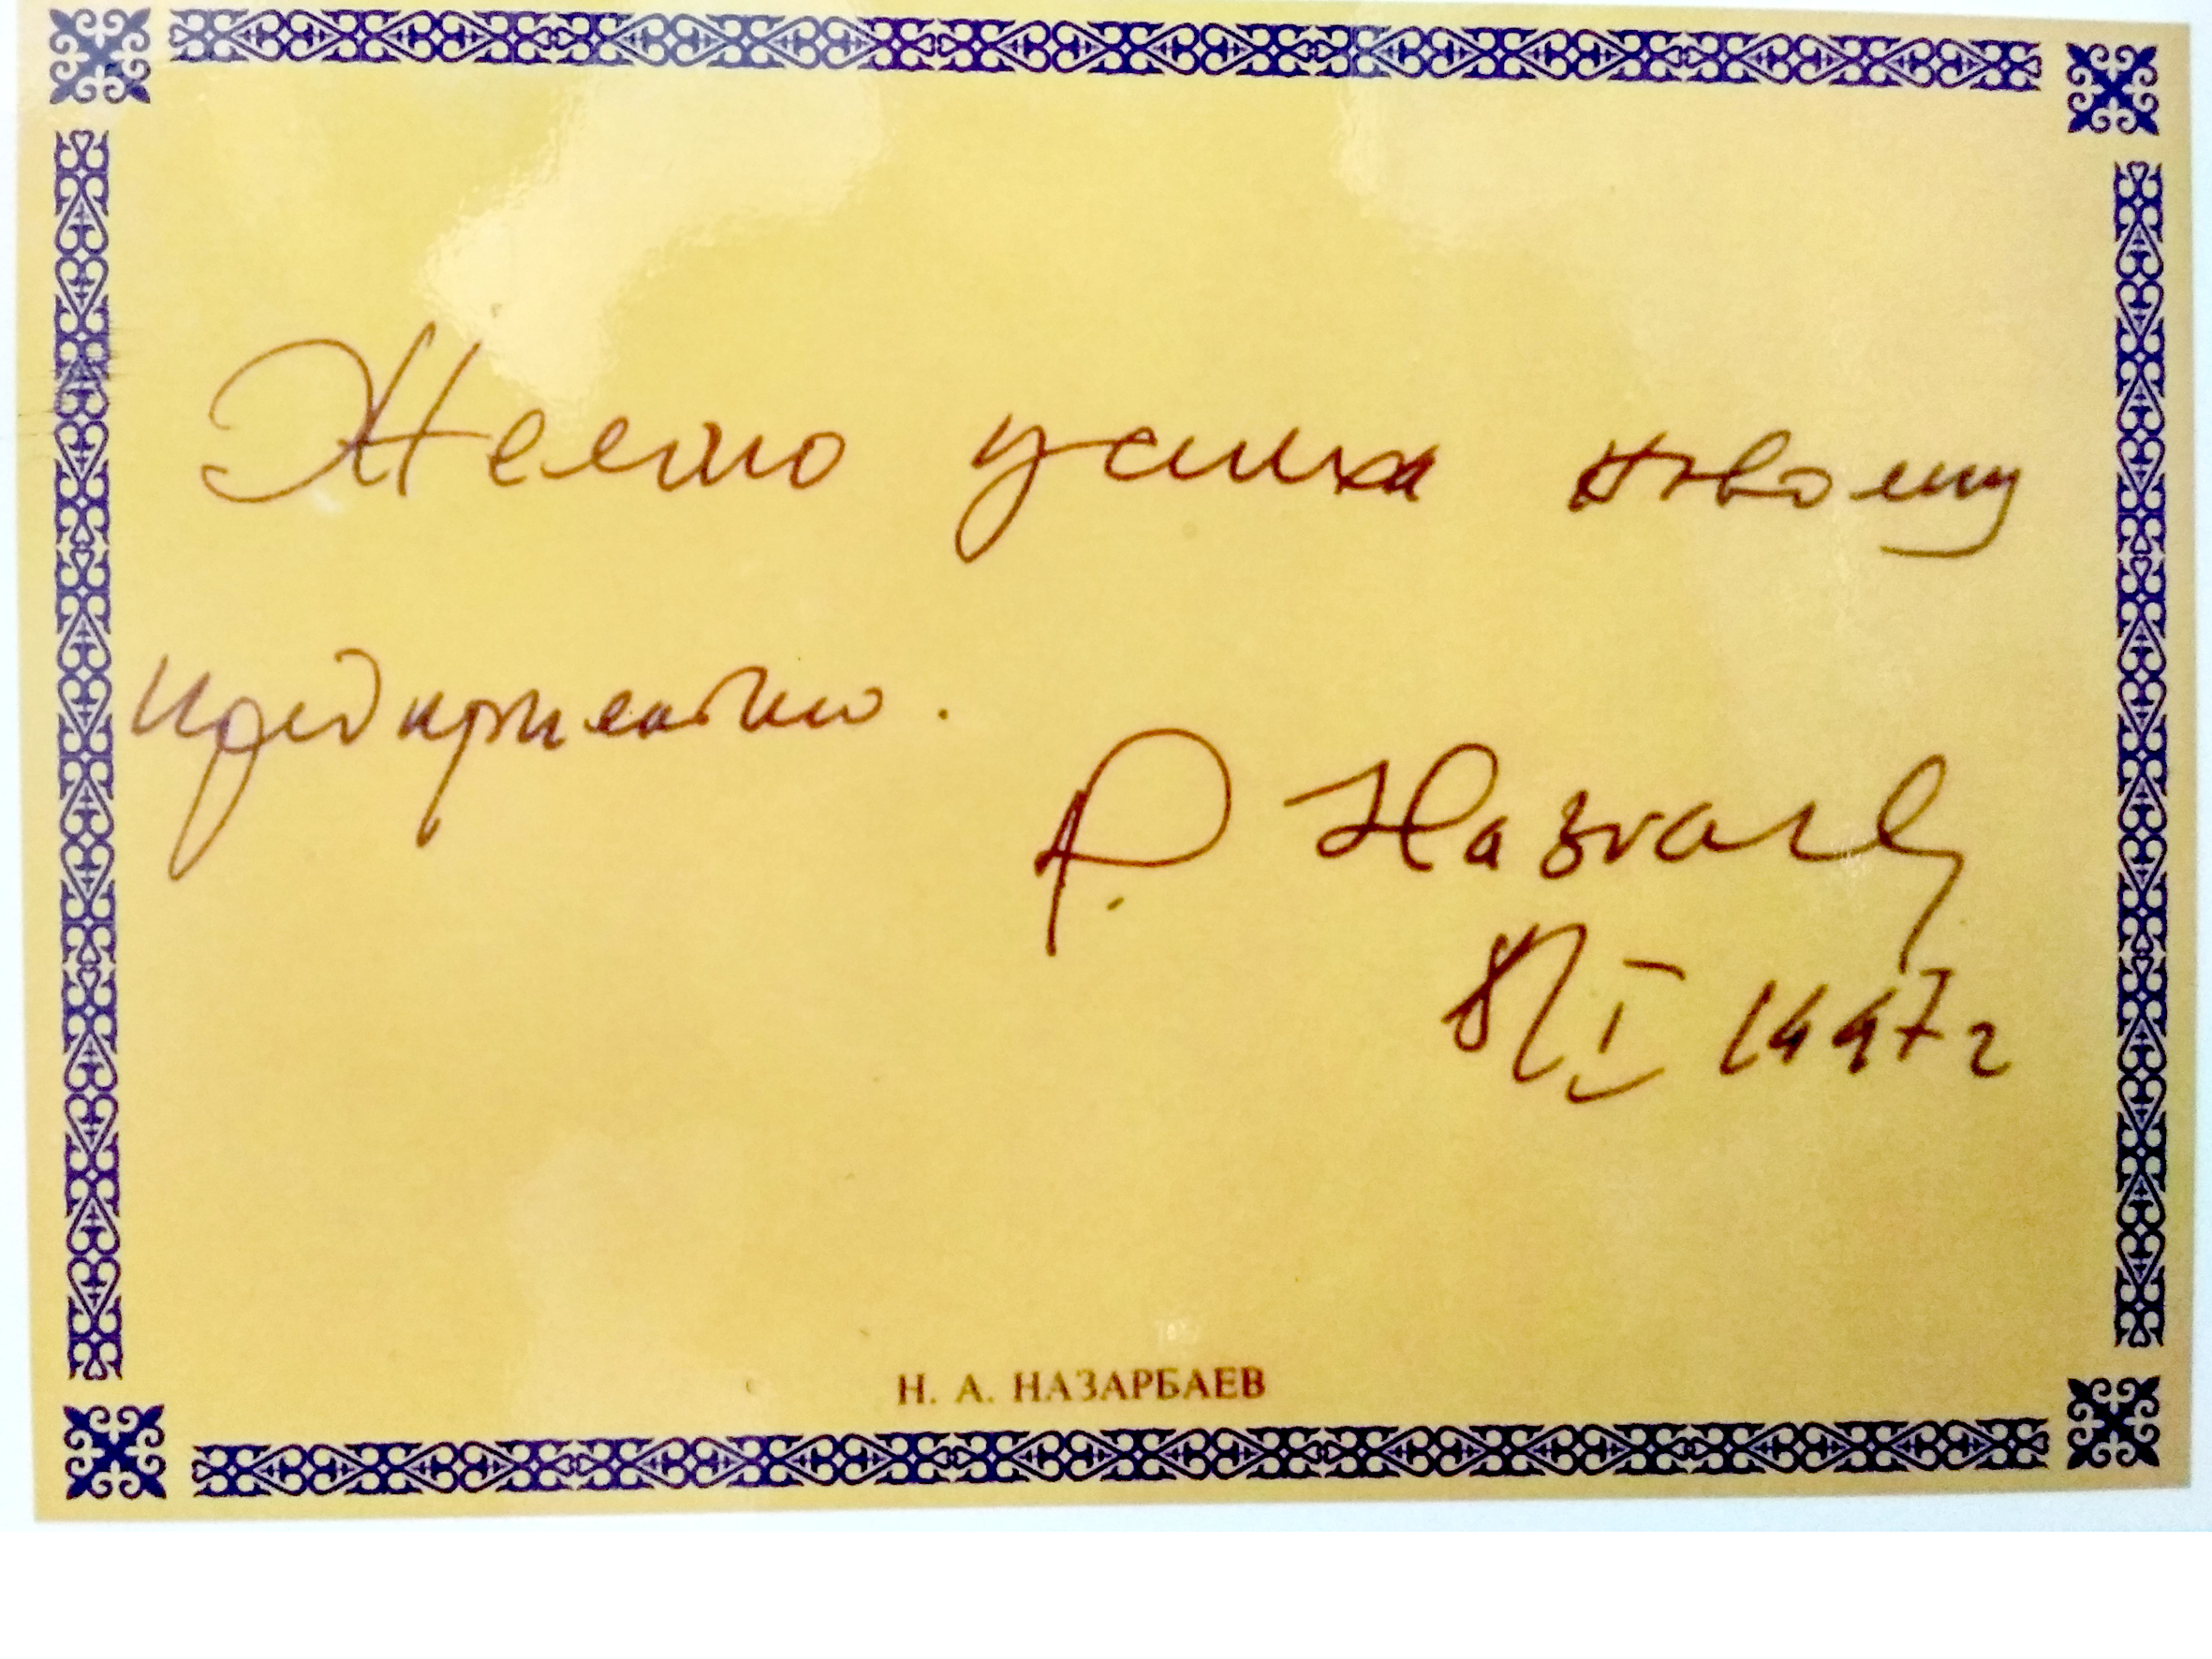 Желаю успеха новому
предприятию.
Р. Назар
I 1997 г
Н. А. НАЗАРБАЕВ